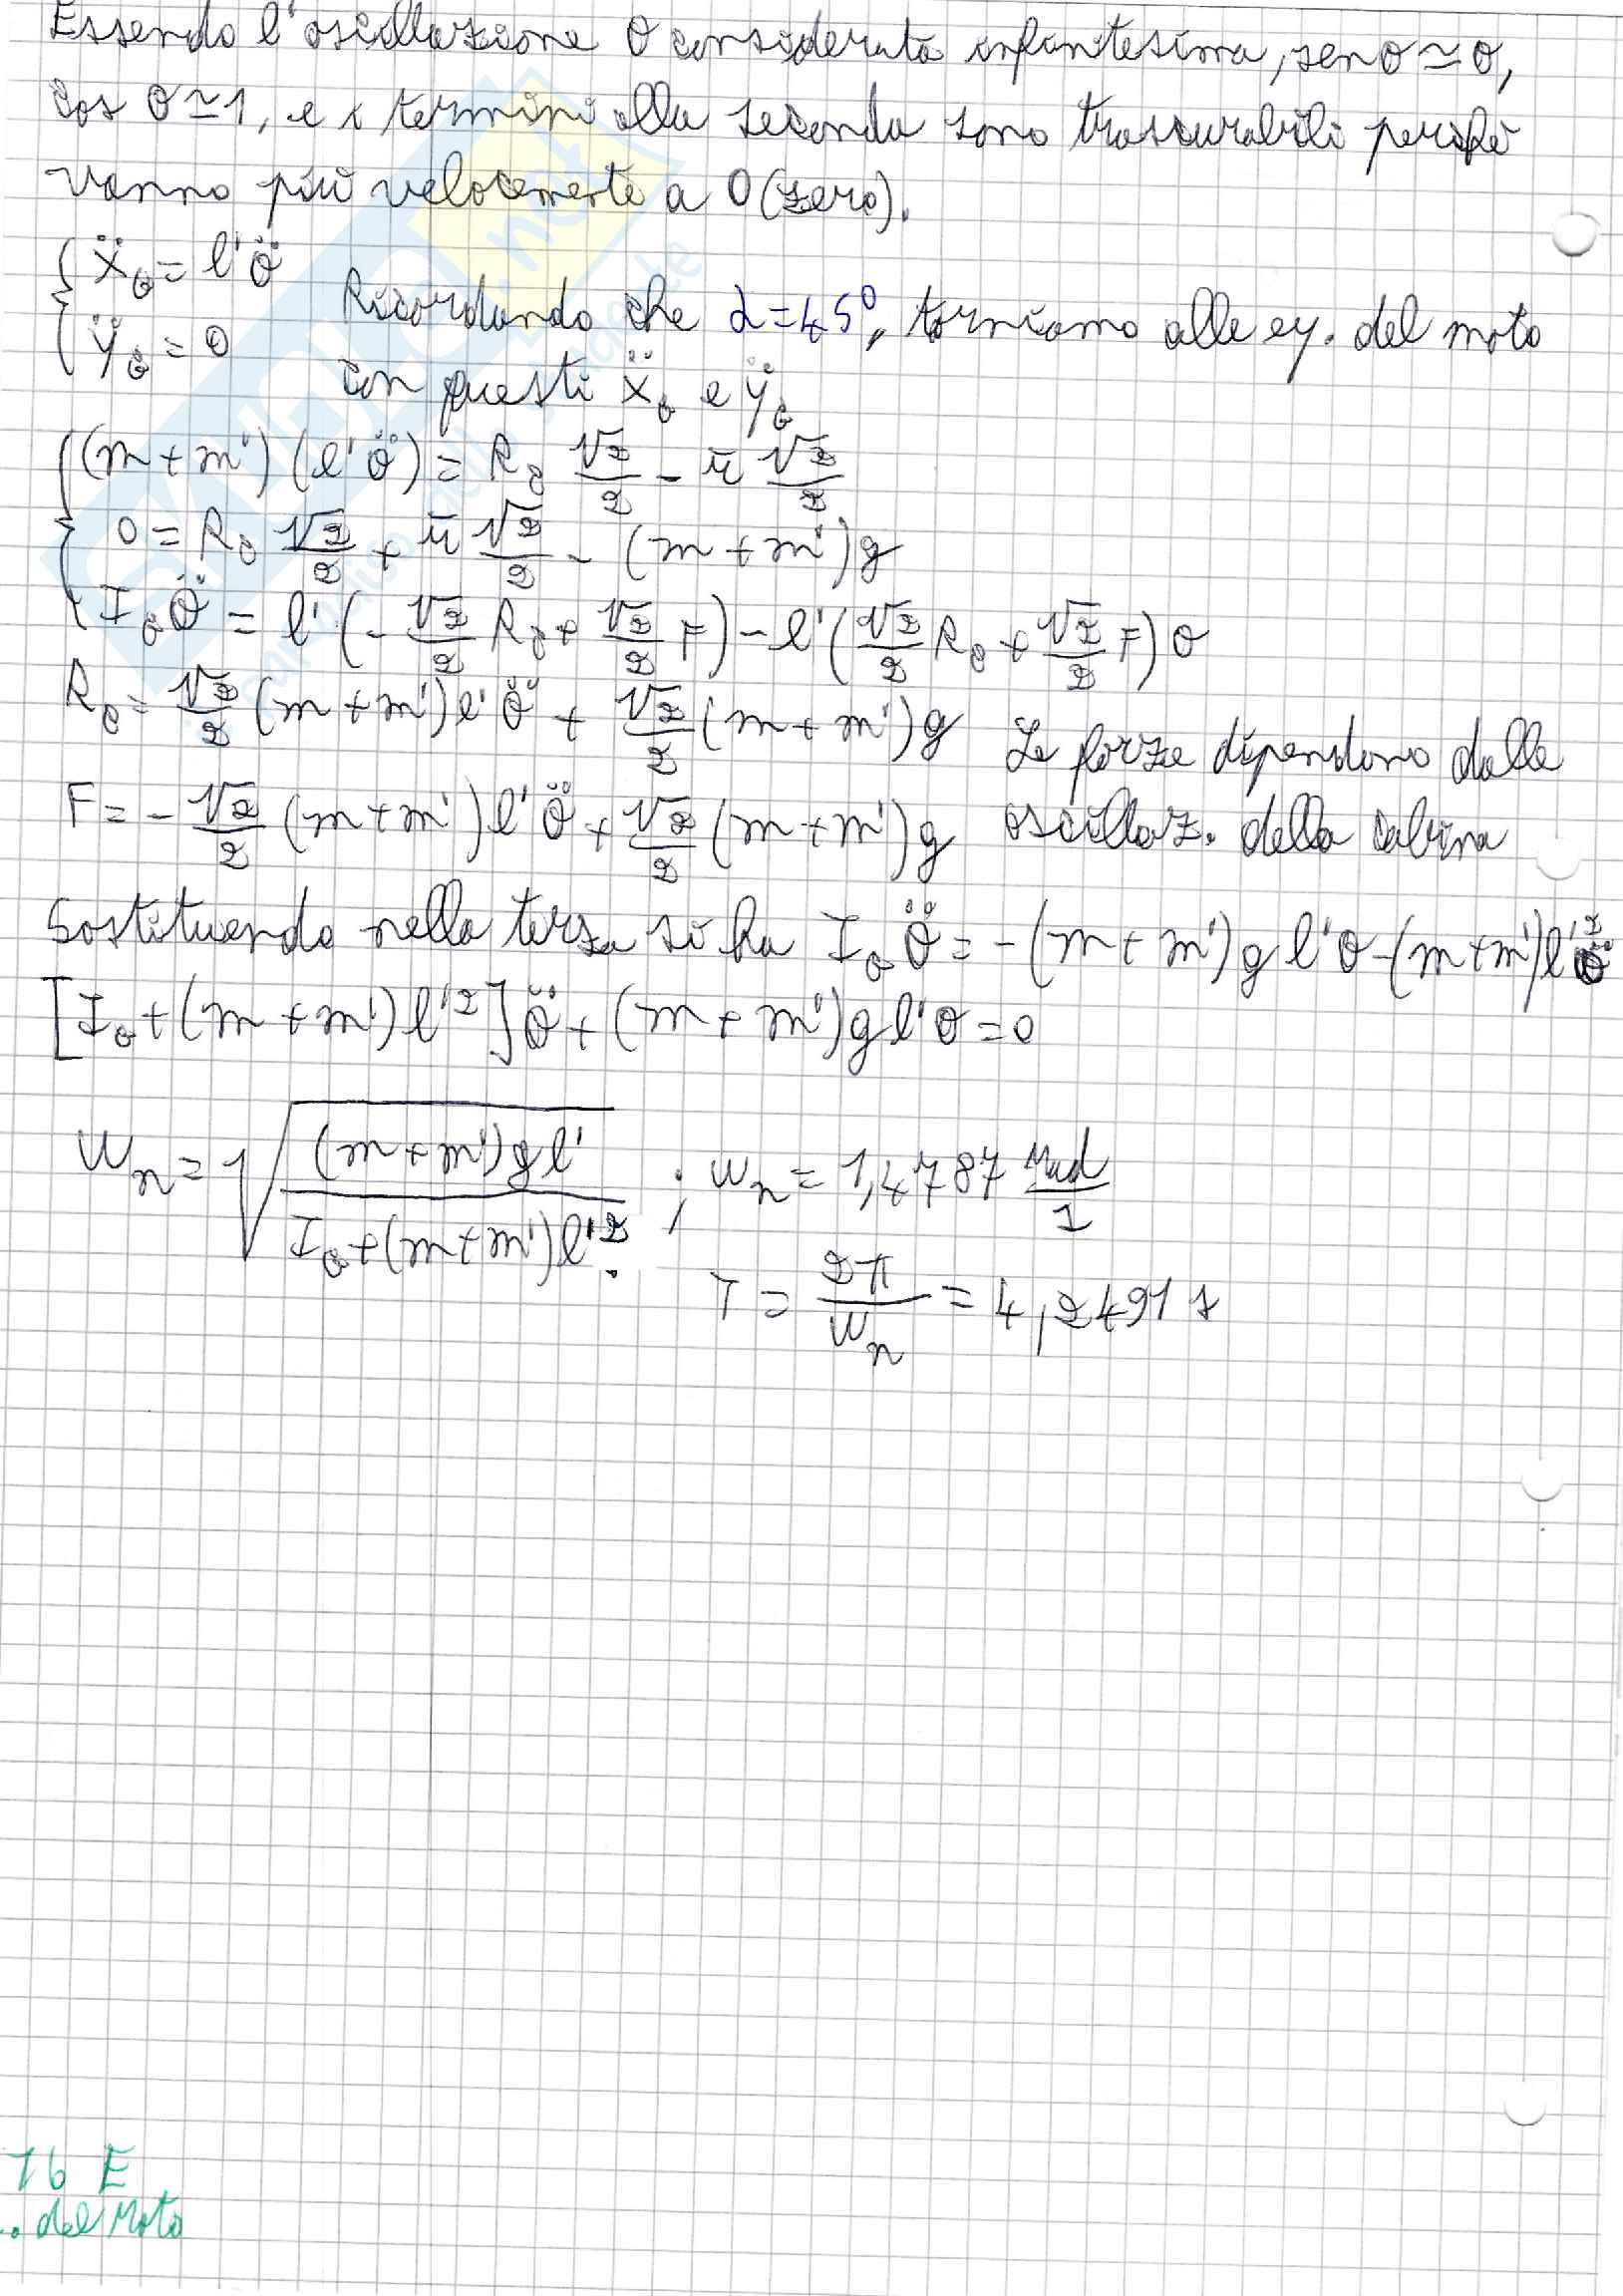 Essendo l'oscillazione θ considerata infinitesima, sen θ ≃ θ,
cos θ ≃ 1, e i termini alla seconda sono trascurabili perché
vanno più velocemente a 0 (zero).
{ ẍ_G = l' θ̈
{ ÿ_G = 0
Ricordando che α = 45°, torniamo alle eq. del moto
con questi ẍ_G e ÿ_G
{ (m + m') (l' θ̈) = R_0 √2/2 - F √2/2
0 = R_0 √2/2 + F √2/2 - (m + m') g
I_G θ̈ = l' (- √2/2 R_0 + √2/2 F) - l' (√2/2 R_0 + √2/2 F) θ
R_0 = √2/2 (m + m') l' θ̈ + √2/2 (m + m') g
F = - √2/2 (m + m') l' θ̈ + √2/2 (m + m') g
Le forze dipendono dalle
oscillaz. della cabina
Sostituendo nella terza si ha I_G θ̈ = - (m + m') g l' θ - (m + m') l'² θ̈
[I_G + (m + m') l'²] θ̈ + (m + m') g l' θ = 0
ω_n = √((m + m') g l' / (I_G + (m + m') l'²)) ; ω_n = 1,4787 rad/s
T = 2π/ω_n = 4,2491 s
16 E
. del Moto